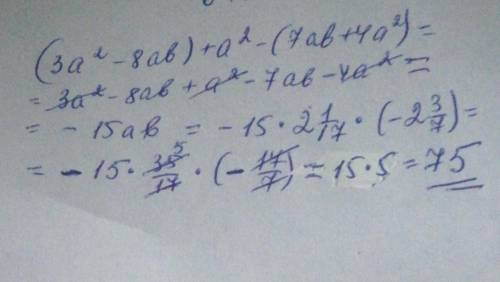 (3a² - 8ab) + a² - (7ab + 4a²) =
= 3a² - 8ab + a² - 7ab - 4a² =
= - 15ab = - 15 · 2 1/17 · (-2 3/7) =
= - 15 · 35/17 5 · (- 17/7) = 15 · 5 = 75